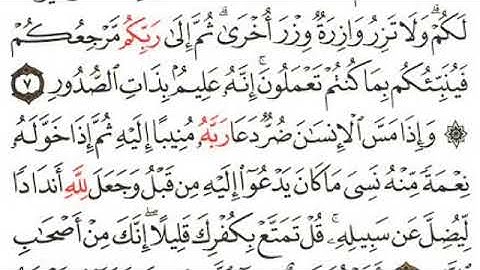 لَكُمْ ۗ وَلَا تَزِرُ وَازِرَةٌ وِزْرَ أُخْرَىٰ ۗ ثُمَّ إِلَىٰ رَبِّكُم مَّرْجِعُكُمْ
فَيُنَبِّئُكُم بِمَا كُنتُمْ تَعْمَلُونَ ۚ إِنَّهُ عَلِيمٌۢ بِذَاتِ الصُّدُورِ ٧
۞ وَإِذَا مَسَّ الْإِنسَانَ ضُرٌّ دَعَا رَبَّهُ مُنِيبًا إِلَيْهِ ثُمَّ إِذَا خَوَّلَهُ
نِعْمَةً مِّنْهُ نَسِىَ مَا كَانَ يَدْعُوٓا۟ إِلَيْهِ مِن قَبْلُ وَجَعَلَ لِلَّهِ أَندَادًا
لِّيُضِلَّ عَن سَبِيلِهِ ۚ قُلْ تَمَتَّعْ بِكُفْرِكَ قَلِيلًا ۖ إِنَّكَ مِنْ أَصْحَابِ